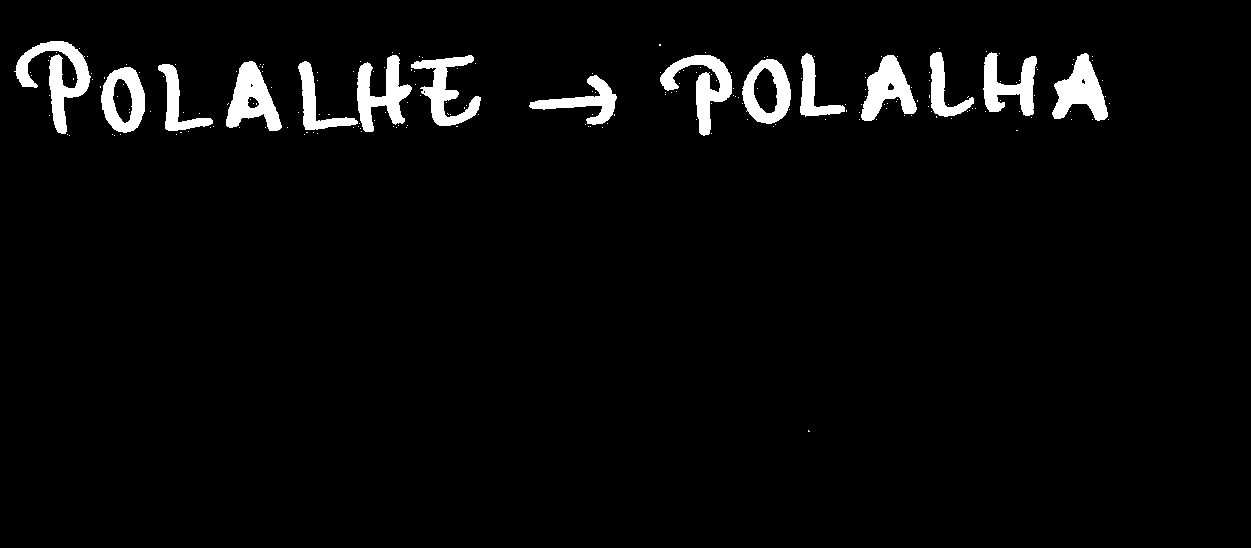 POLALHE → POLALHA